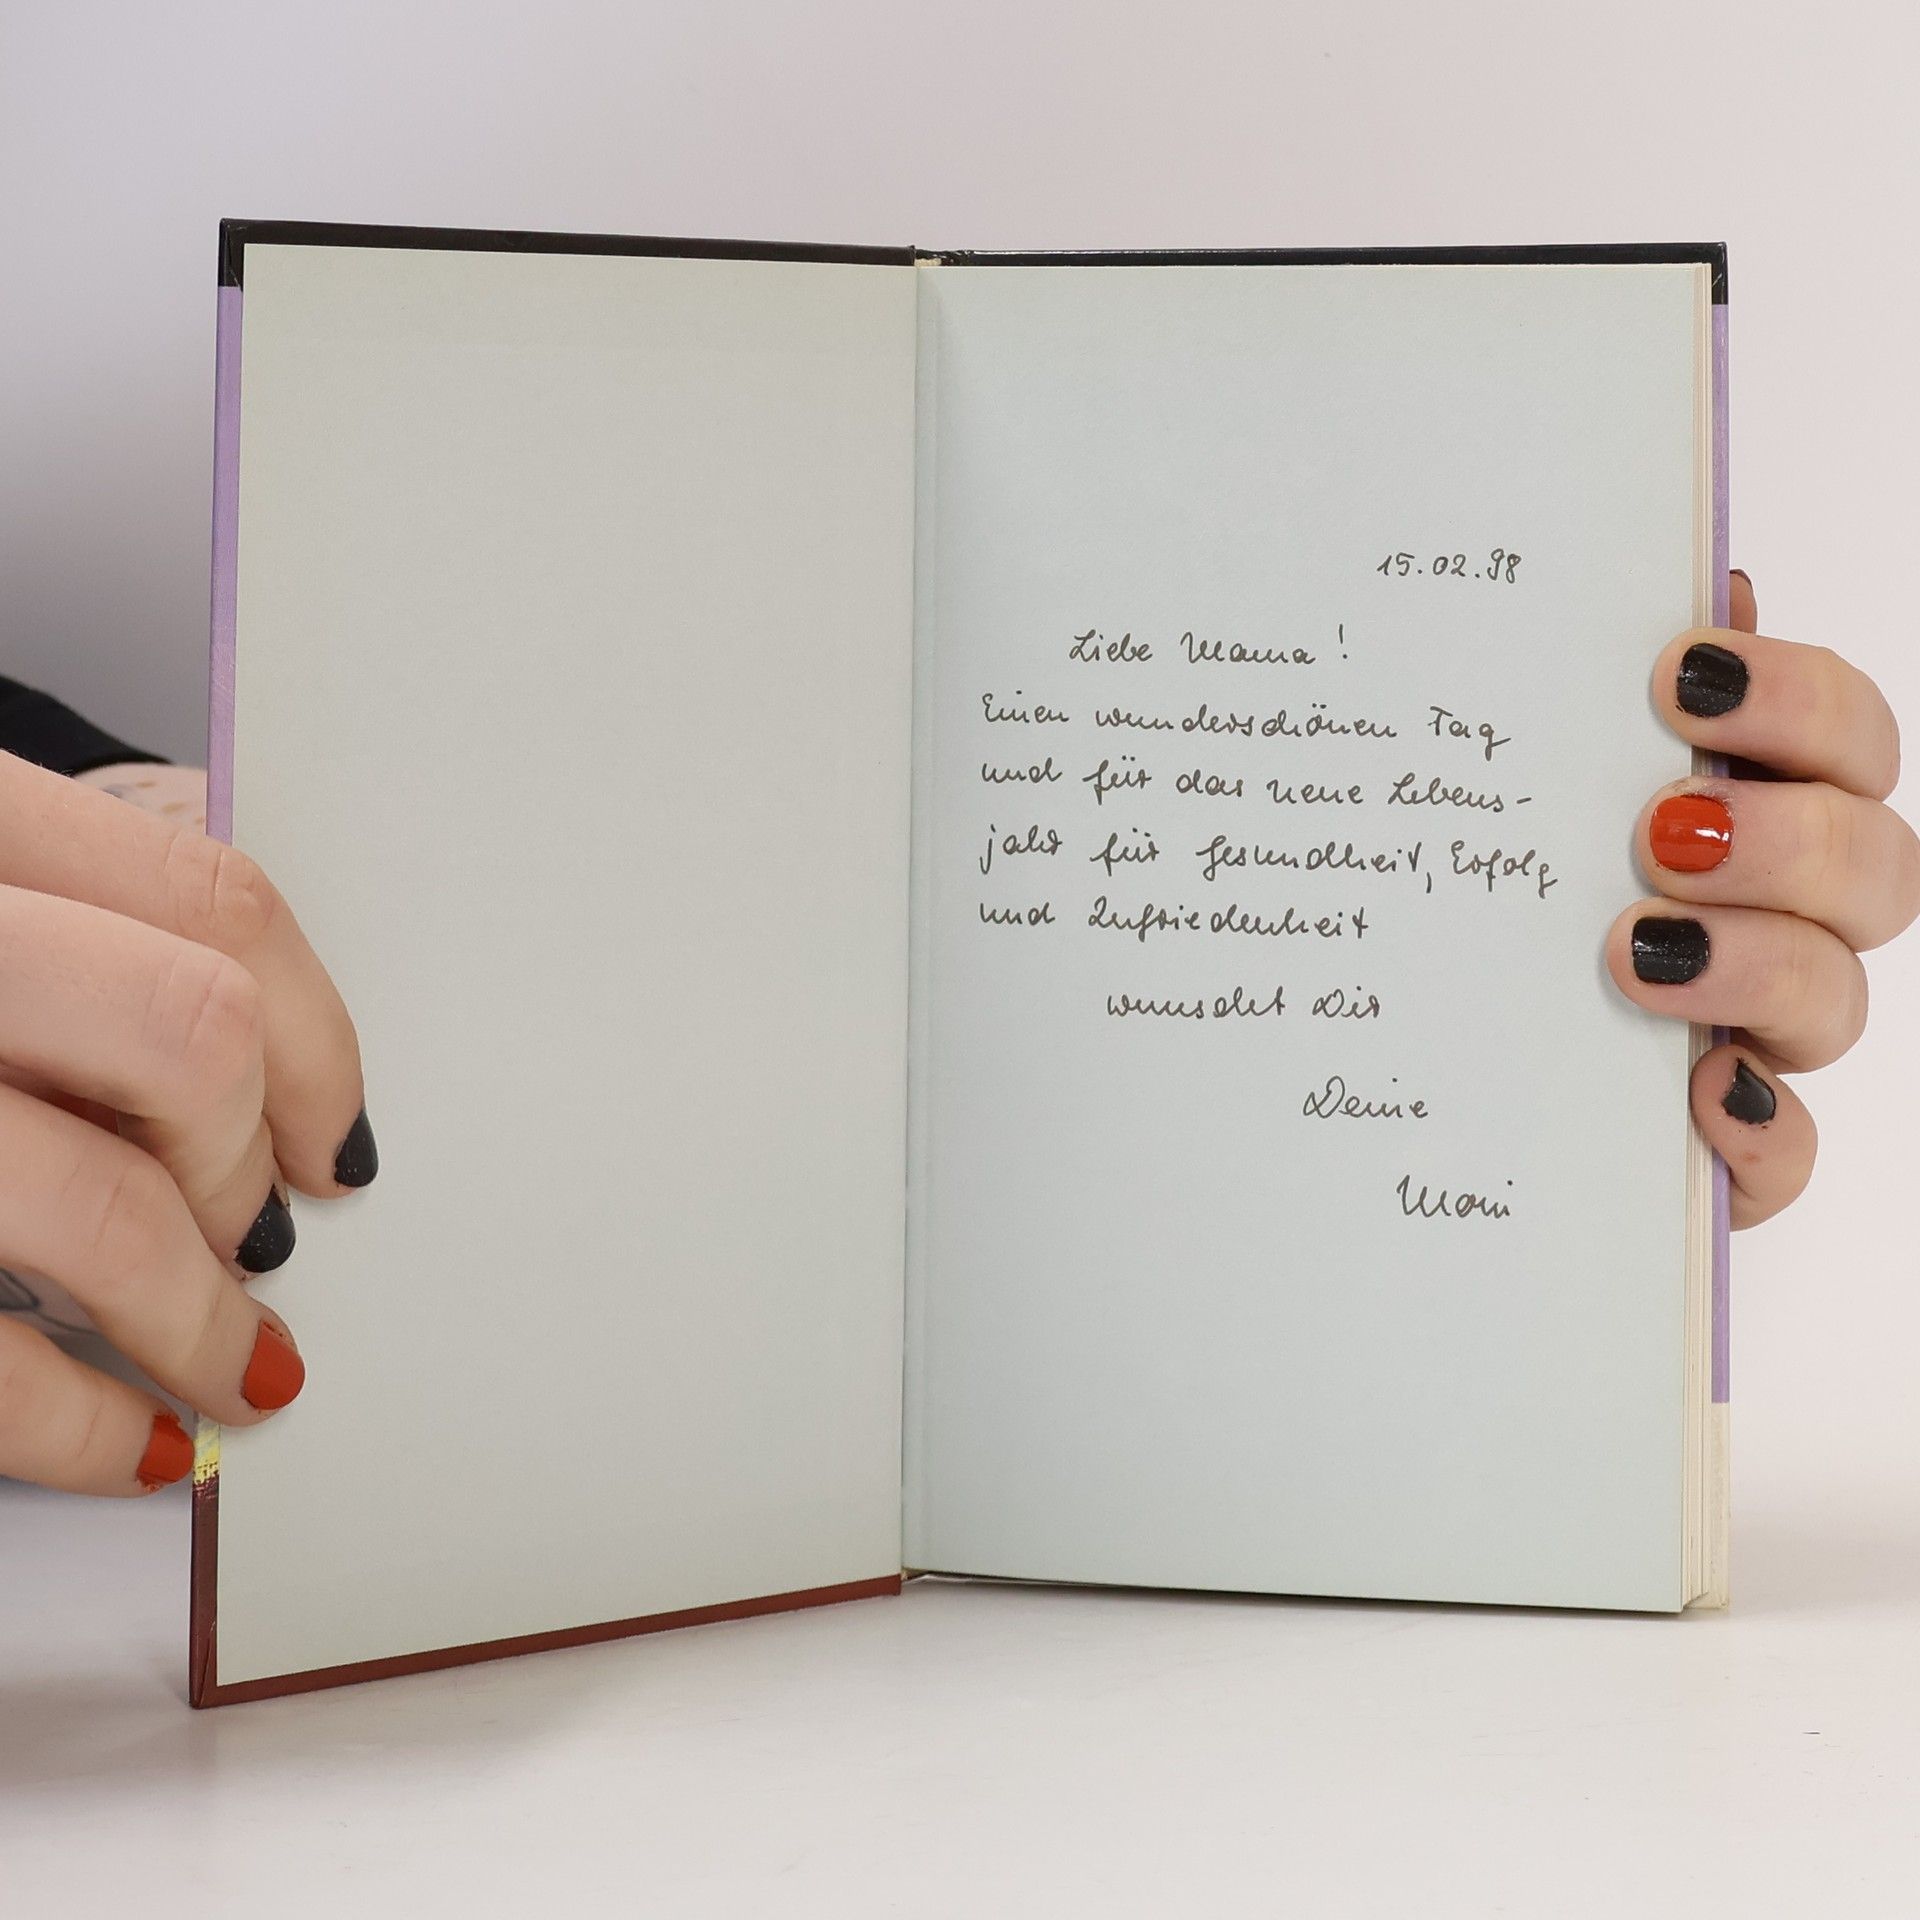 15.02.98
Liebe Mama!
Einen wunderschönen Tag
und für das neue Lebens-
jahr für Gesundheit, Erfolg
und Zufriedenheit
wunscht Dir
Deine
Moni